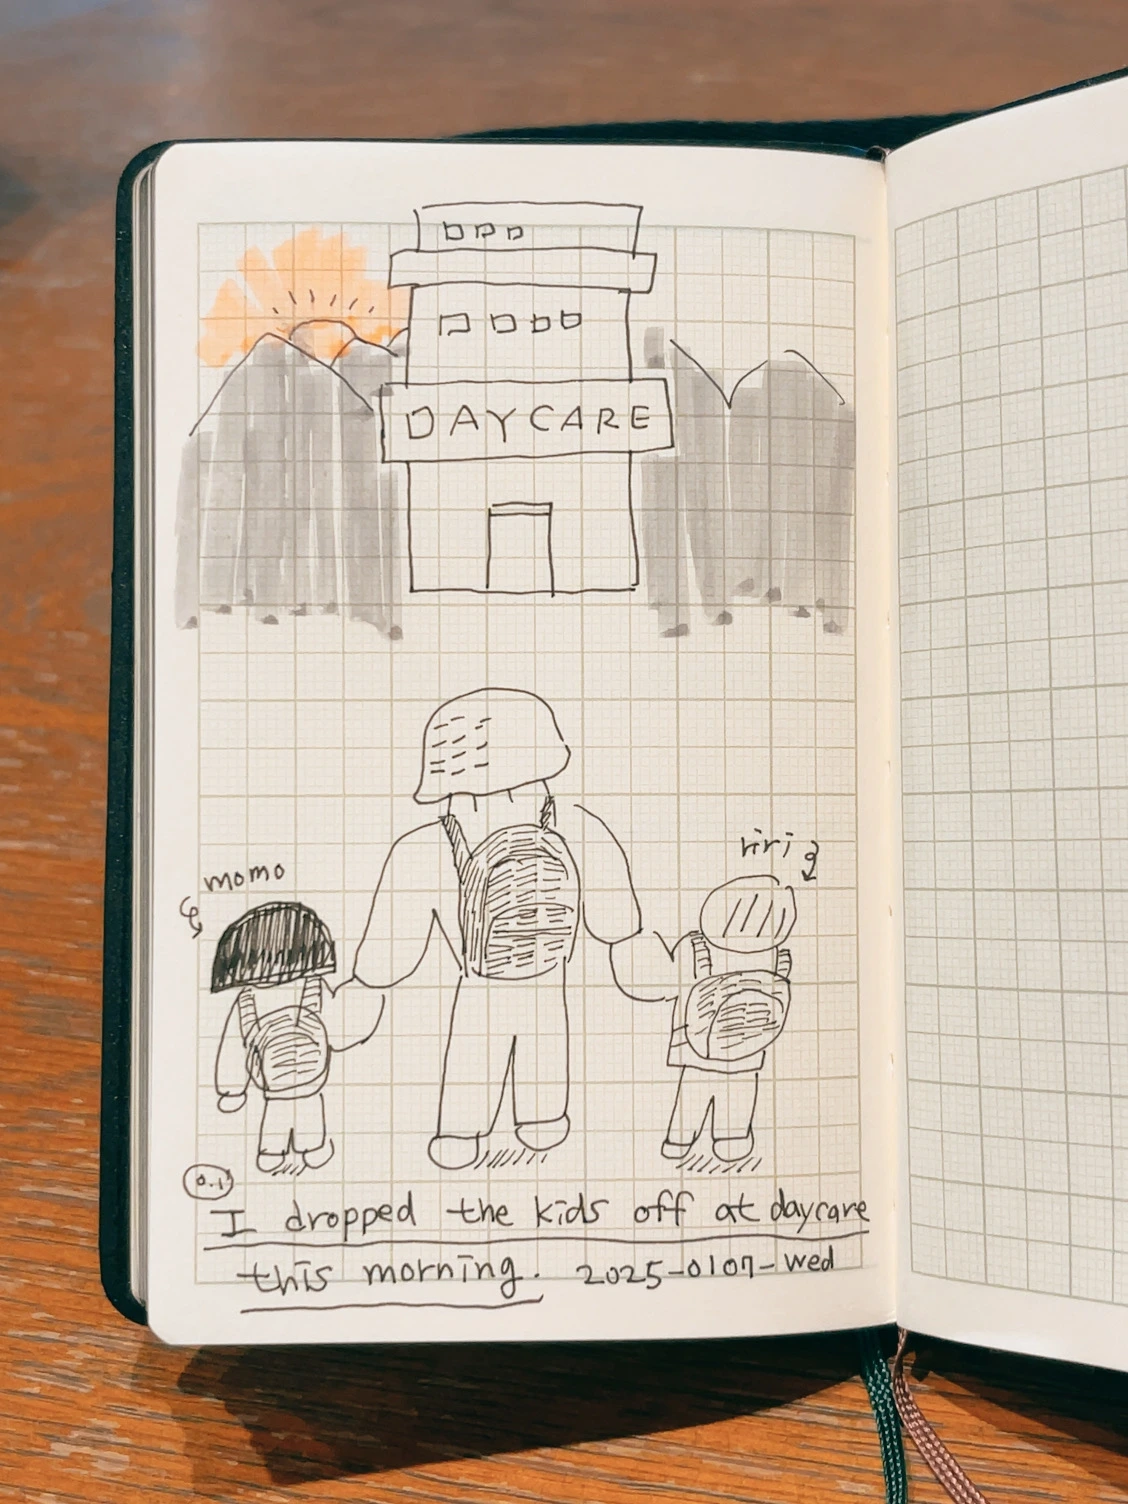 DAYCARE
momo
riri
I dropped the kids off at daycare
this morning. 2025-0107-Wed